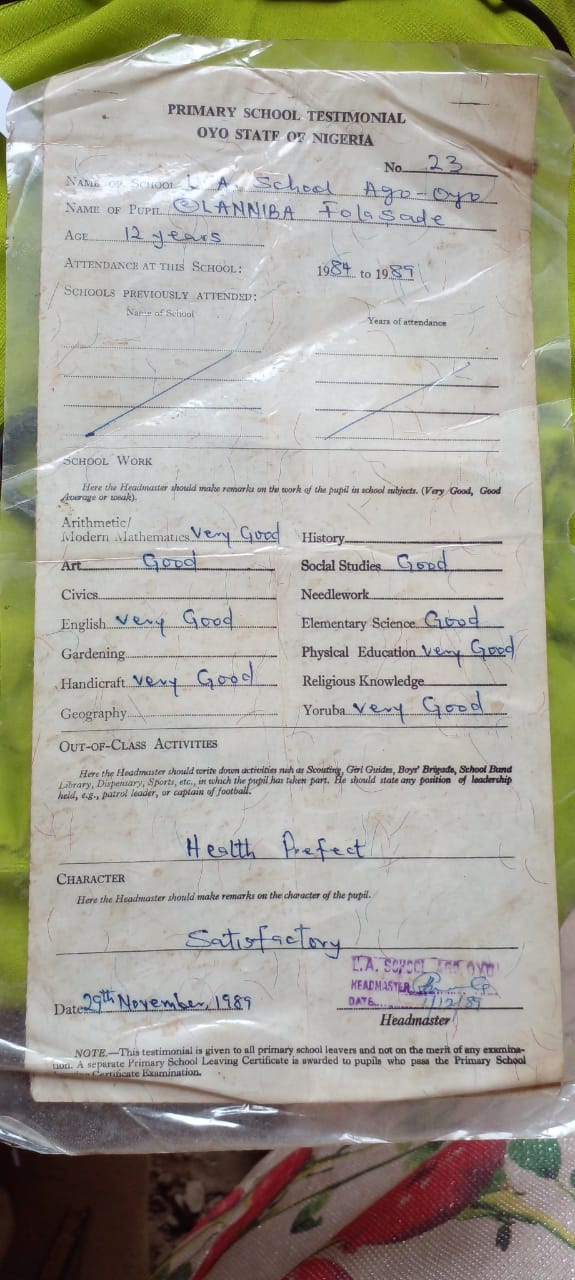 PRIMARY SCHOOL TESTIMONIAL
OYO STATE OF NIGERIA
No. 23
NAME OF SCHOOL L. A. School Ago-Oyo
NAME OF PUPIL OLANNIBA Folasade
AGE 12 years
ATTENDANCE AT THIS SCHOOL: 1984 to 1989
SCHOOLS PREVIOUSLY ATTENDED:
Name of School Years of attendance
SCHOOL WORK
Here the Headmaster should make remarks on the work of the pupil in school subjects. (Very Good, Good
Average or weak).
Arithmetic/
Modern Mathematics Very Good History
Art Good Social Studies Good
Civics Needlework
English Very Good Elementary Science Good
Gardening Physical Education Very Good
Handicraft Very Good Religious Knowledge
Geography Yoruba Very Good
OUT-OF-CLASS ACTIVITIES
Here the Headmaster should write down activities such as Scouting, Girl Guides, Boys' Brigade, School Band
Library, Dispensary, Sports, etc., in which the pupil has taken part. He should state any position of leadership
held, e.g., patrol leader, or captain of football.
Health Prefect
CHARACTER
Here the Headmaster should make remarks on the character of the pupil.
Satisfactory
L.A. SCHOOL AGO OYO
HEADMASTER
Date 29th November, 1989 DATE 1/12/89
Headmaster
NOTE.—This testimonial is given to all primary school leavers and not on the merit of any examina-
tion. A separate Primary School Leaving Certificate is awarded to pupils who pass the Primary School
Certificate Examination.